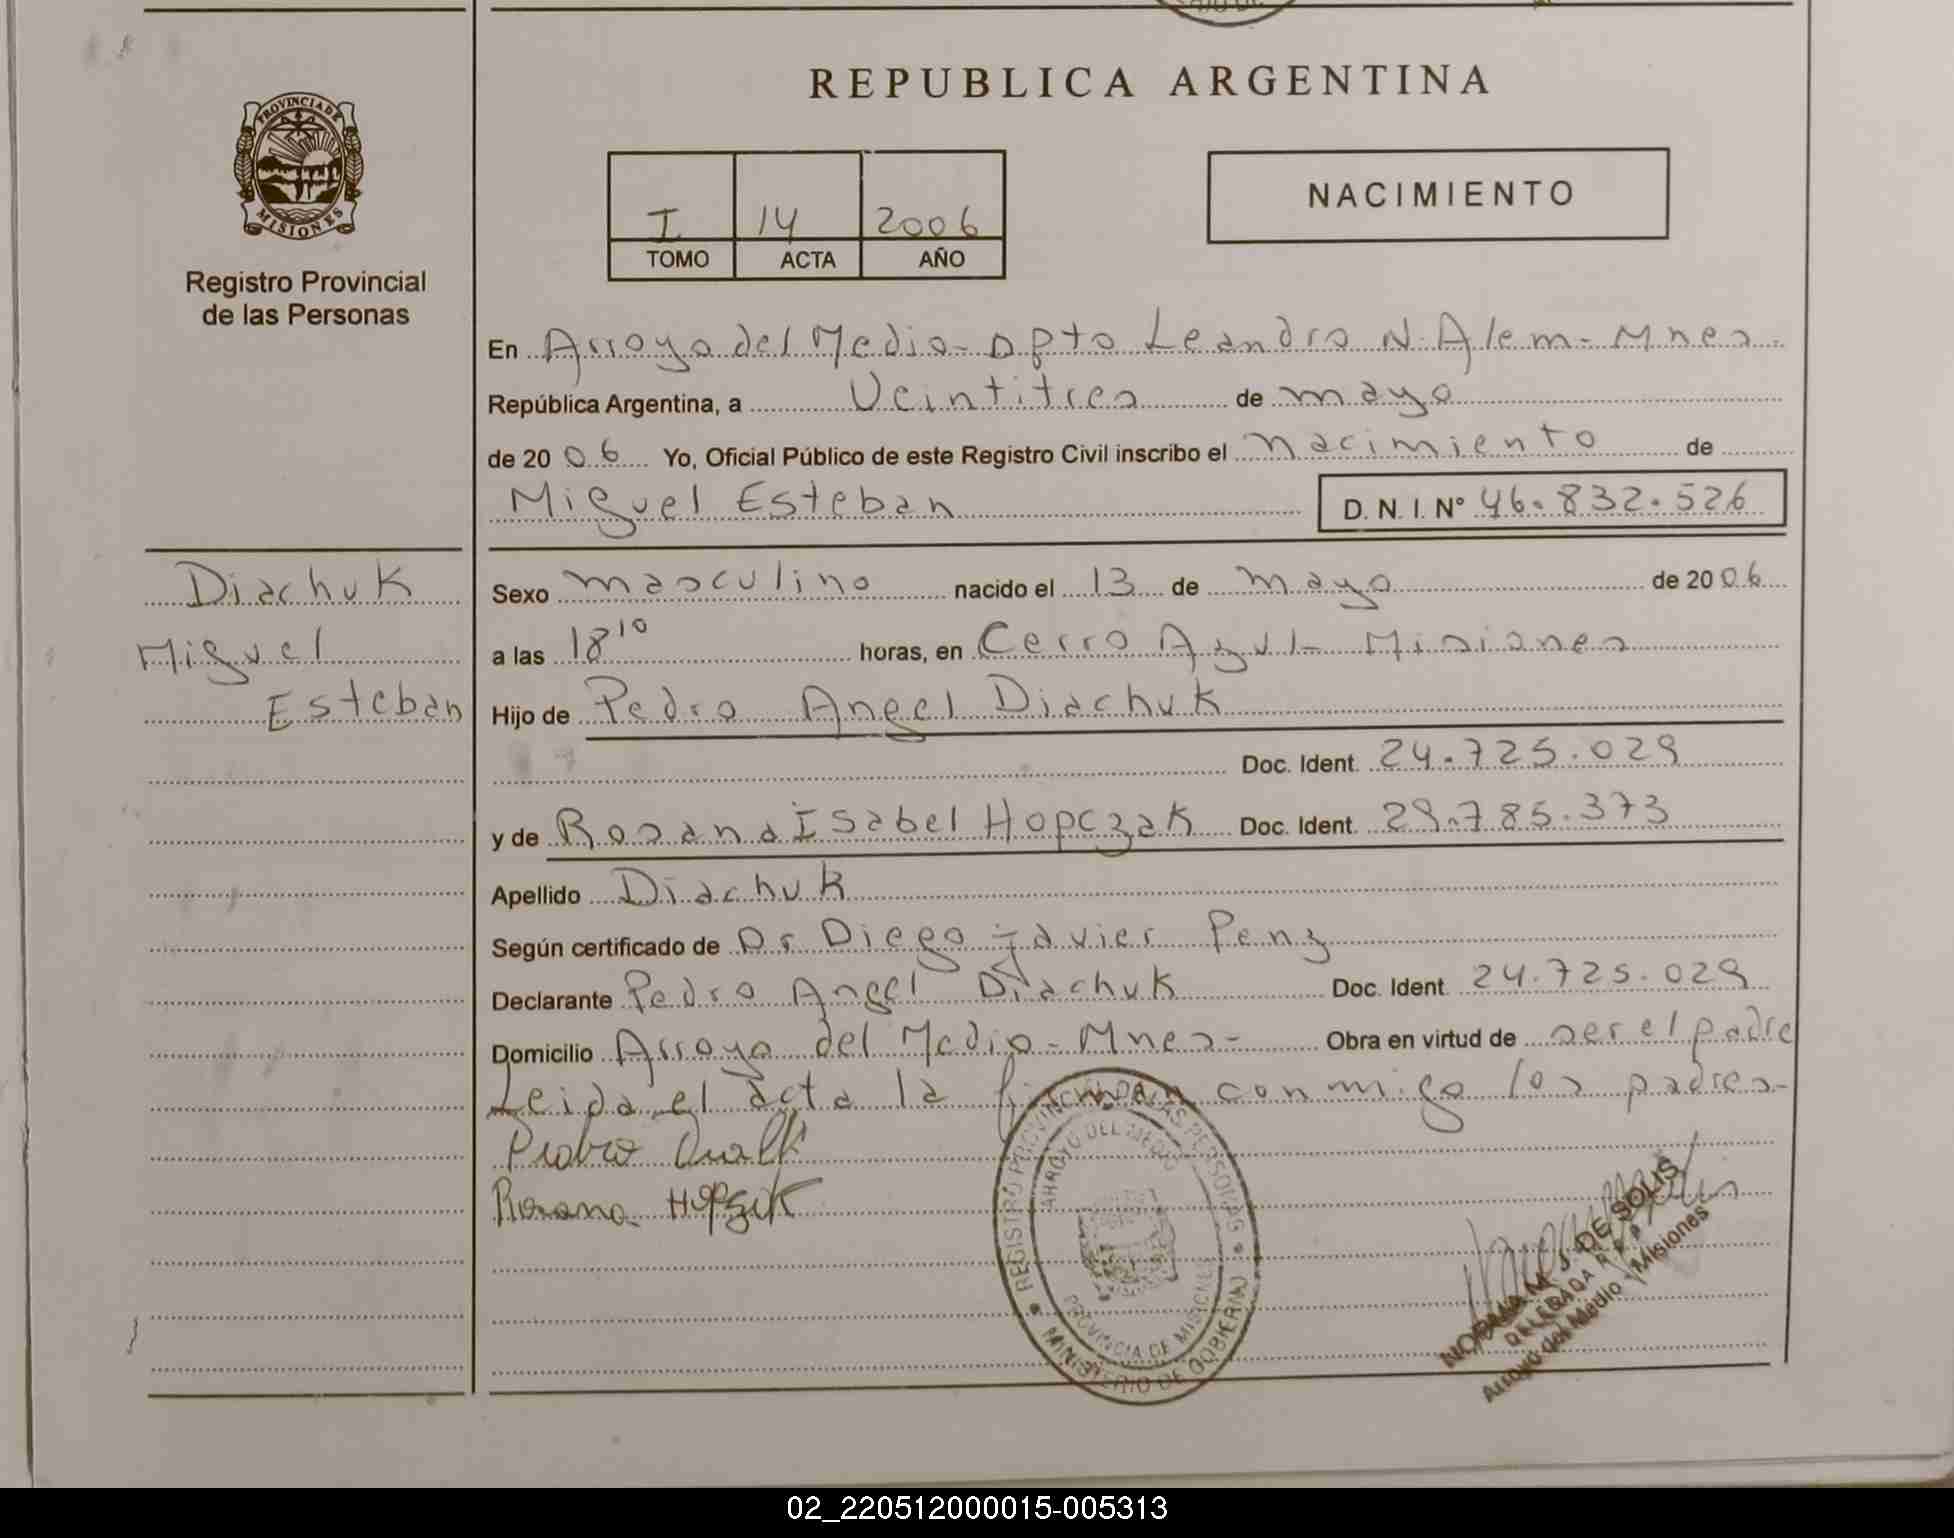 REPUBLICA ARGENTINA
PROVINCIA DE
MISIONES
Registro Provincial
de las Personas
I 14 2006
TOMO ACTA AÑO
NACIMIENTO
En Arroyo del Medio - Dpto Leandro N. Alem - Mnes -
República Argentina, a Veintitres de mayo
de 2006 Yo, Oficial Público de este Registro Civil inscribo el nacimiento de
Miguel Esteban D. N. I. N° 46.832.526
Diachuk
Miguel
Esteban
Sexo masculino nacido el 13 de mayo de 2006
a las 18 10 horas, en Cerro Azul - Misiones
Hijo de Pedro Angel Diachuk
Doc. Ident. 24.725.029
y de Rosana Isabel Hopczak Doc. Ident. 29.785.373
Apellido Diachuk
Según certificado de Dr Diego Javier Penz
Declarante Pedro Angel Diachuk Doc. Ident. 24.725.029
Domicilio Arroyo del Medio - Mnes - Obra en virtud de ser el padre
Leida el acta la firman conmigo los padres -
Rosana
REGISTRO PROVINCIAL DE LAS PERSONAS
ARROYO DEL MEDIO
PROVINCIA DE MISIONES
MINISTERIO DE GOBIERNO
NORMA M. J. DE SOLIS
DELEGADA R. P. P.
Arroyo del Medio - Misiones
02_220512000015-005313